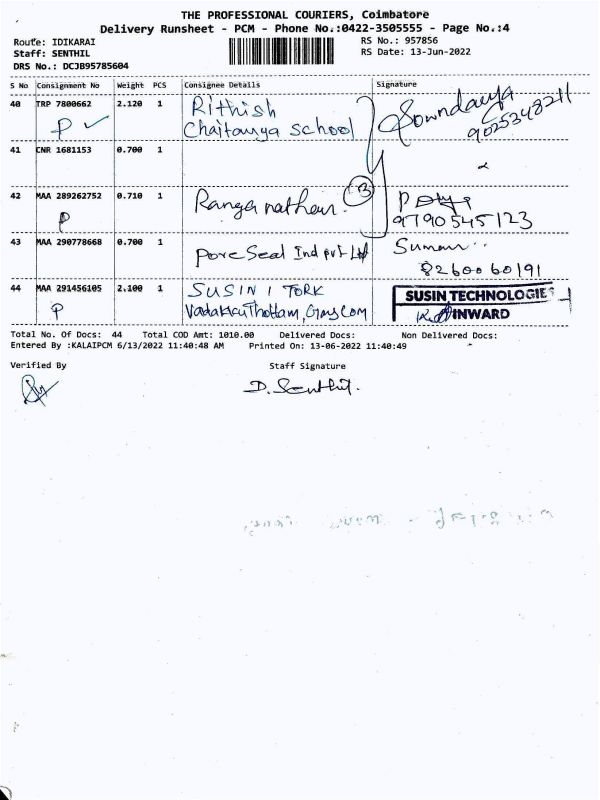 THE PROFESSIONAL COURIERS, Coimbatore
Delivery Runsheet - PCM - Phone No.:0422-3505555 - Page No.:4
Route: IDIKARAI
RS No.: 957856
Staff: SENTHIL
RS Date: 13-Jun-2022
DRS No.: DCJB95785604
S No Consignment No Weight PCS Consignee Details Signature
40 TRP 7800662 2.120 1 Rithish
Chaitanya school Sowndarya
9025348211
P
41 CNR 1681153 0.700 1
42 MAA 289262752 0.710 1 Ranganathan. 3 P
P 9790545123
43 MAA 290778668 0.700 1 Pore Seal Ind pvt Ltd Suman
8260060191
44 MAA 291456105 2.100 1 SUSIN 1 TORK SUSIN TECHNOLOGIES
P Vadakkai Thottam, INWARD
Total No. Of Docs: 44 Total COD Amt: 1010.00 Delivered Docs: Non Delivered Docs:
Entered By :KALAIPCM 6/13/2022 11:40:48 AM Printed On: 13-06-2022 11:40:49
Verified By Staff Signature
D. Senthil.